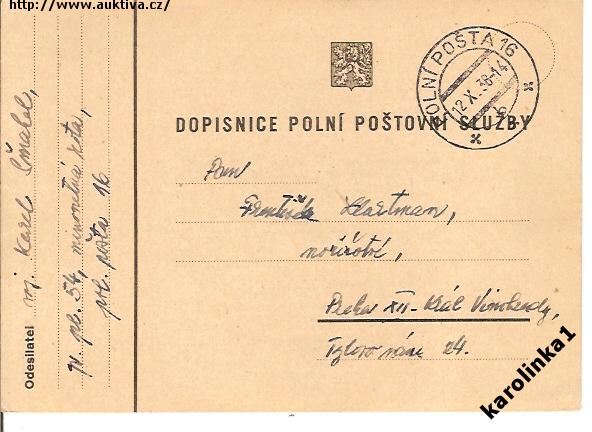 http://www.auktiva.cz/
POLNÍ POŠTA 16
12 X. 38-14
b
DOPISNICE POLNÍ POŠTOVNÍ SLUŽBY
Pan
Hartman,
Praha XII - Král Vinohrady,
Tylovo nám 24.
Odesílatel voj. Karel
pl. 54, minometná rota,
pol. pošta 16
karolinka1